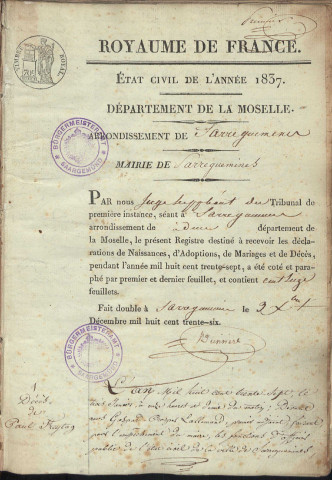 Premier
TIMBRE ROYAL
ROYAUME DE FRANCE.
ÉTAT CIVIL DE L'ANNÉE 1837.
DÉPARTEMENT DE LA MOSELLE.
ARRONDISSEMENT DE Sarreguemines
MAIRIE DE Sarreguemines
BÜRGERMEISTERAMT SAARGEMÜND
PAR nous Juge suppléant du Tribunal de
première instance, séant à Sarreguemines
arrondissement de département
de la Moselle, le présent Registre destiné à recevoir les décla-
rations de Naissances, d'Adoptions, de Mariages et de Décès,
pendant l'année mil huit cent trente-sept, a été coté et para-
phé par premier et dernier feuillet, et contient cent
feuillets.
Fait double à Sarreguemines le
Décembre mil huit cent trente-six.
BÜRGERMEISTERAMT SAARGEMÜND
1
Décès
de
Paul
L'an Mil huit cent trente Sept le
à onze heures
par
l'empêchement du maire, les fonctions d'officier
public de l'état civil de la ville de Sarreguemines